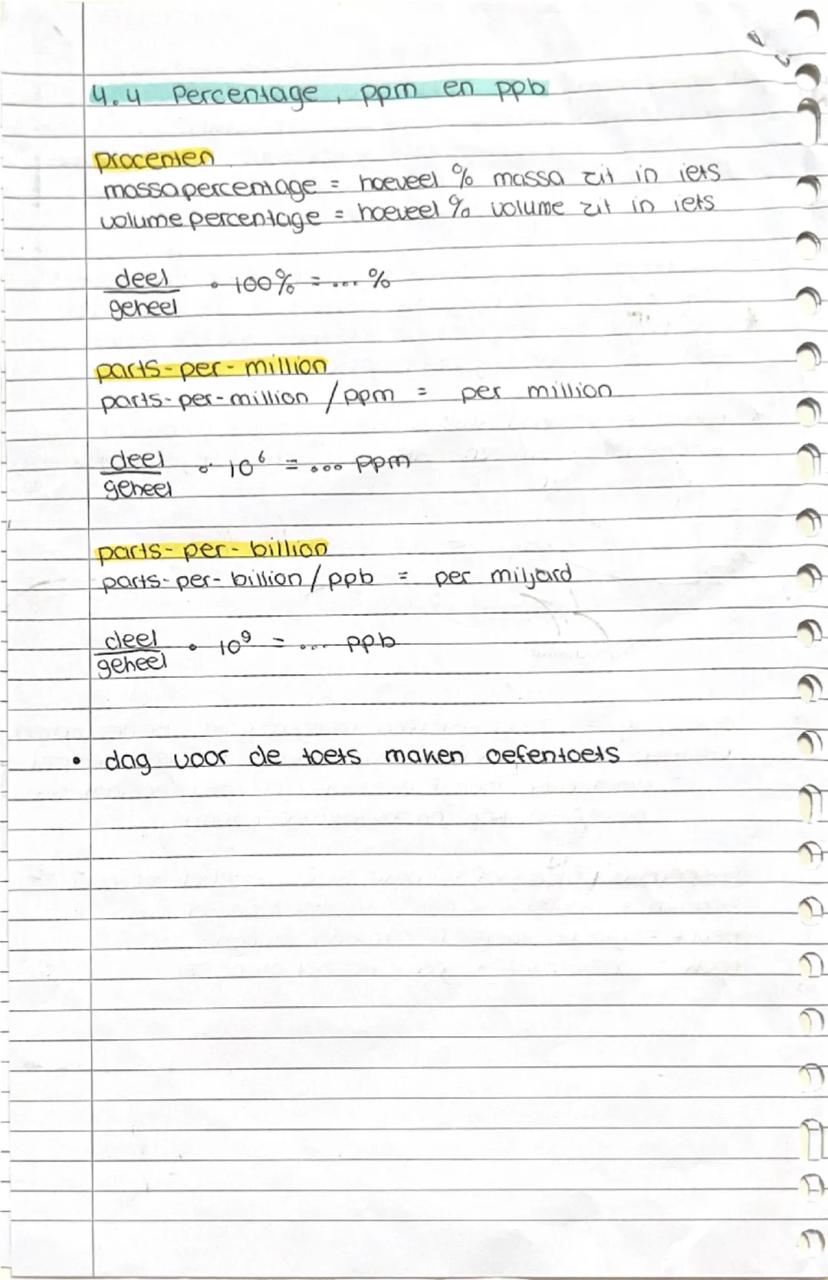 4.4 Percentage, ppm en ppb
procenten
massapercentage = hoeveel % massa zit in iets
volumepercentage = hoeveel % volume zit in iets
deel
geheel
• 100% = ... %
parts-per-million
parts-per-million / ppm = per million
deel
geheel
• 10⁶ = ... ppm
parts-per-billion
parts-per-billion / ppb = per miljard
deel
geheel
• 10⁹ = ... ppb
• dag voor de toets maken oefentoets